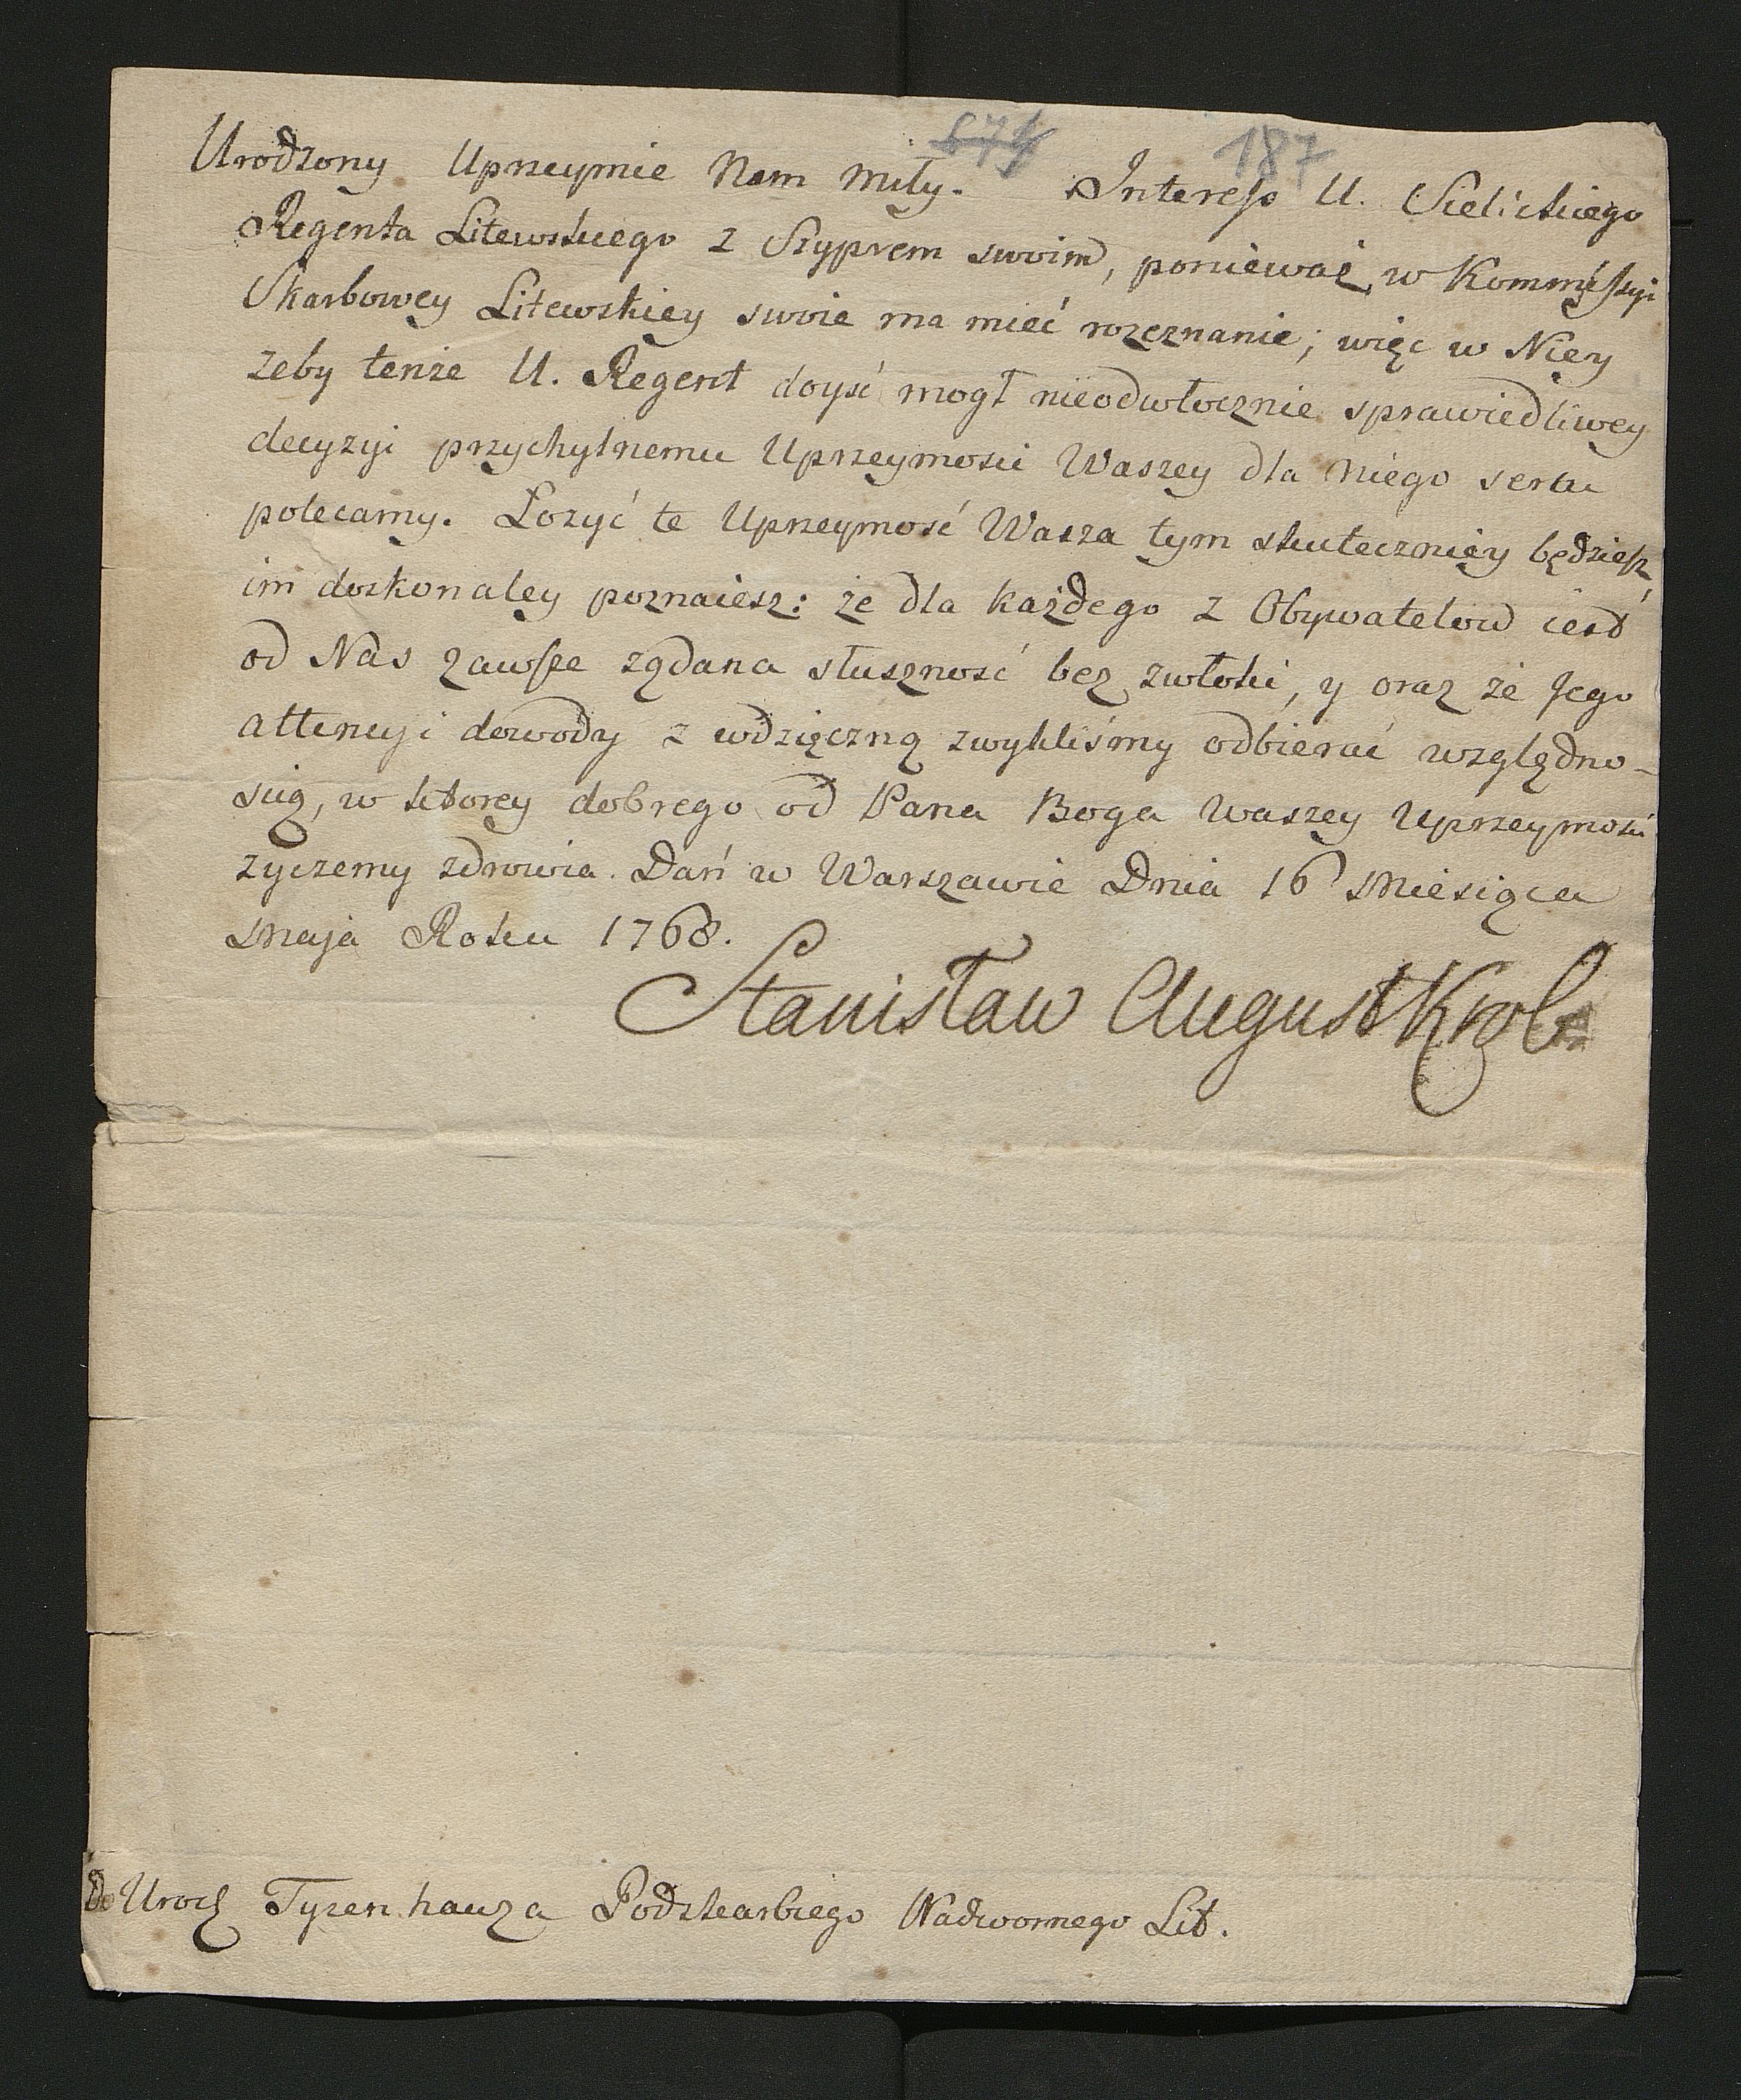 674 187
Urodzony Uprzeymie Nam Miły. Interess U. Sielickiego
Regenta Litewskiego z Szyprem swoim, ponieważ w Kommissyi
Skarbowey Litewskiey swoie ma mieć rozeznanie; więc w Niey
żeby tenże U. Regent doyść mogł nieodwłocznie sprawiedliwey
decyzyi przychylnemu Uprzeymości Waszey dla niego sercu
polecamy. Łozyć te Uprzeymość Wasza tym skuteczniey będziesz,
im doskonaley poznaiesz: że dla każdego z Obywatelow iest
od Nas zawsze żądana słuszność bez zwłoki, y oraz że Jego
attencyi dowody z wdzięczną zwykliśmy odbierać względno-
ścią, w ktorey dobrego od Pana Boga Waszey Uprzeymości
życzemy zdrowia. Dań w Warszawie Dnia 16 Miesiąca
Maja Roku 1768.
Stanisław August Krol
Do Urodz Tyzenhauza Podskarbiego Nadwornego Lit.